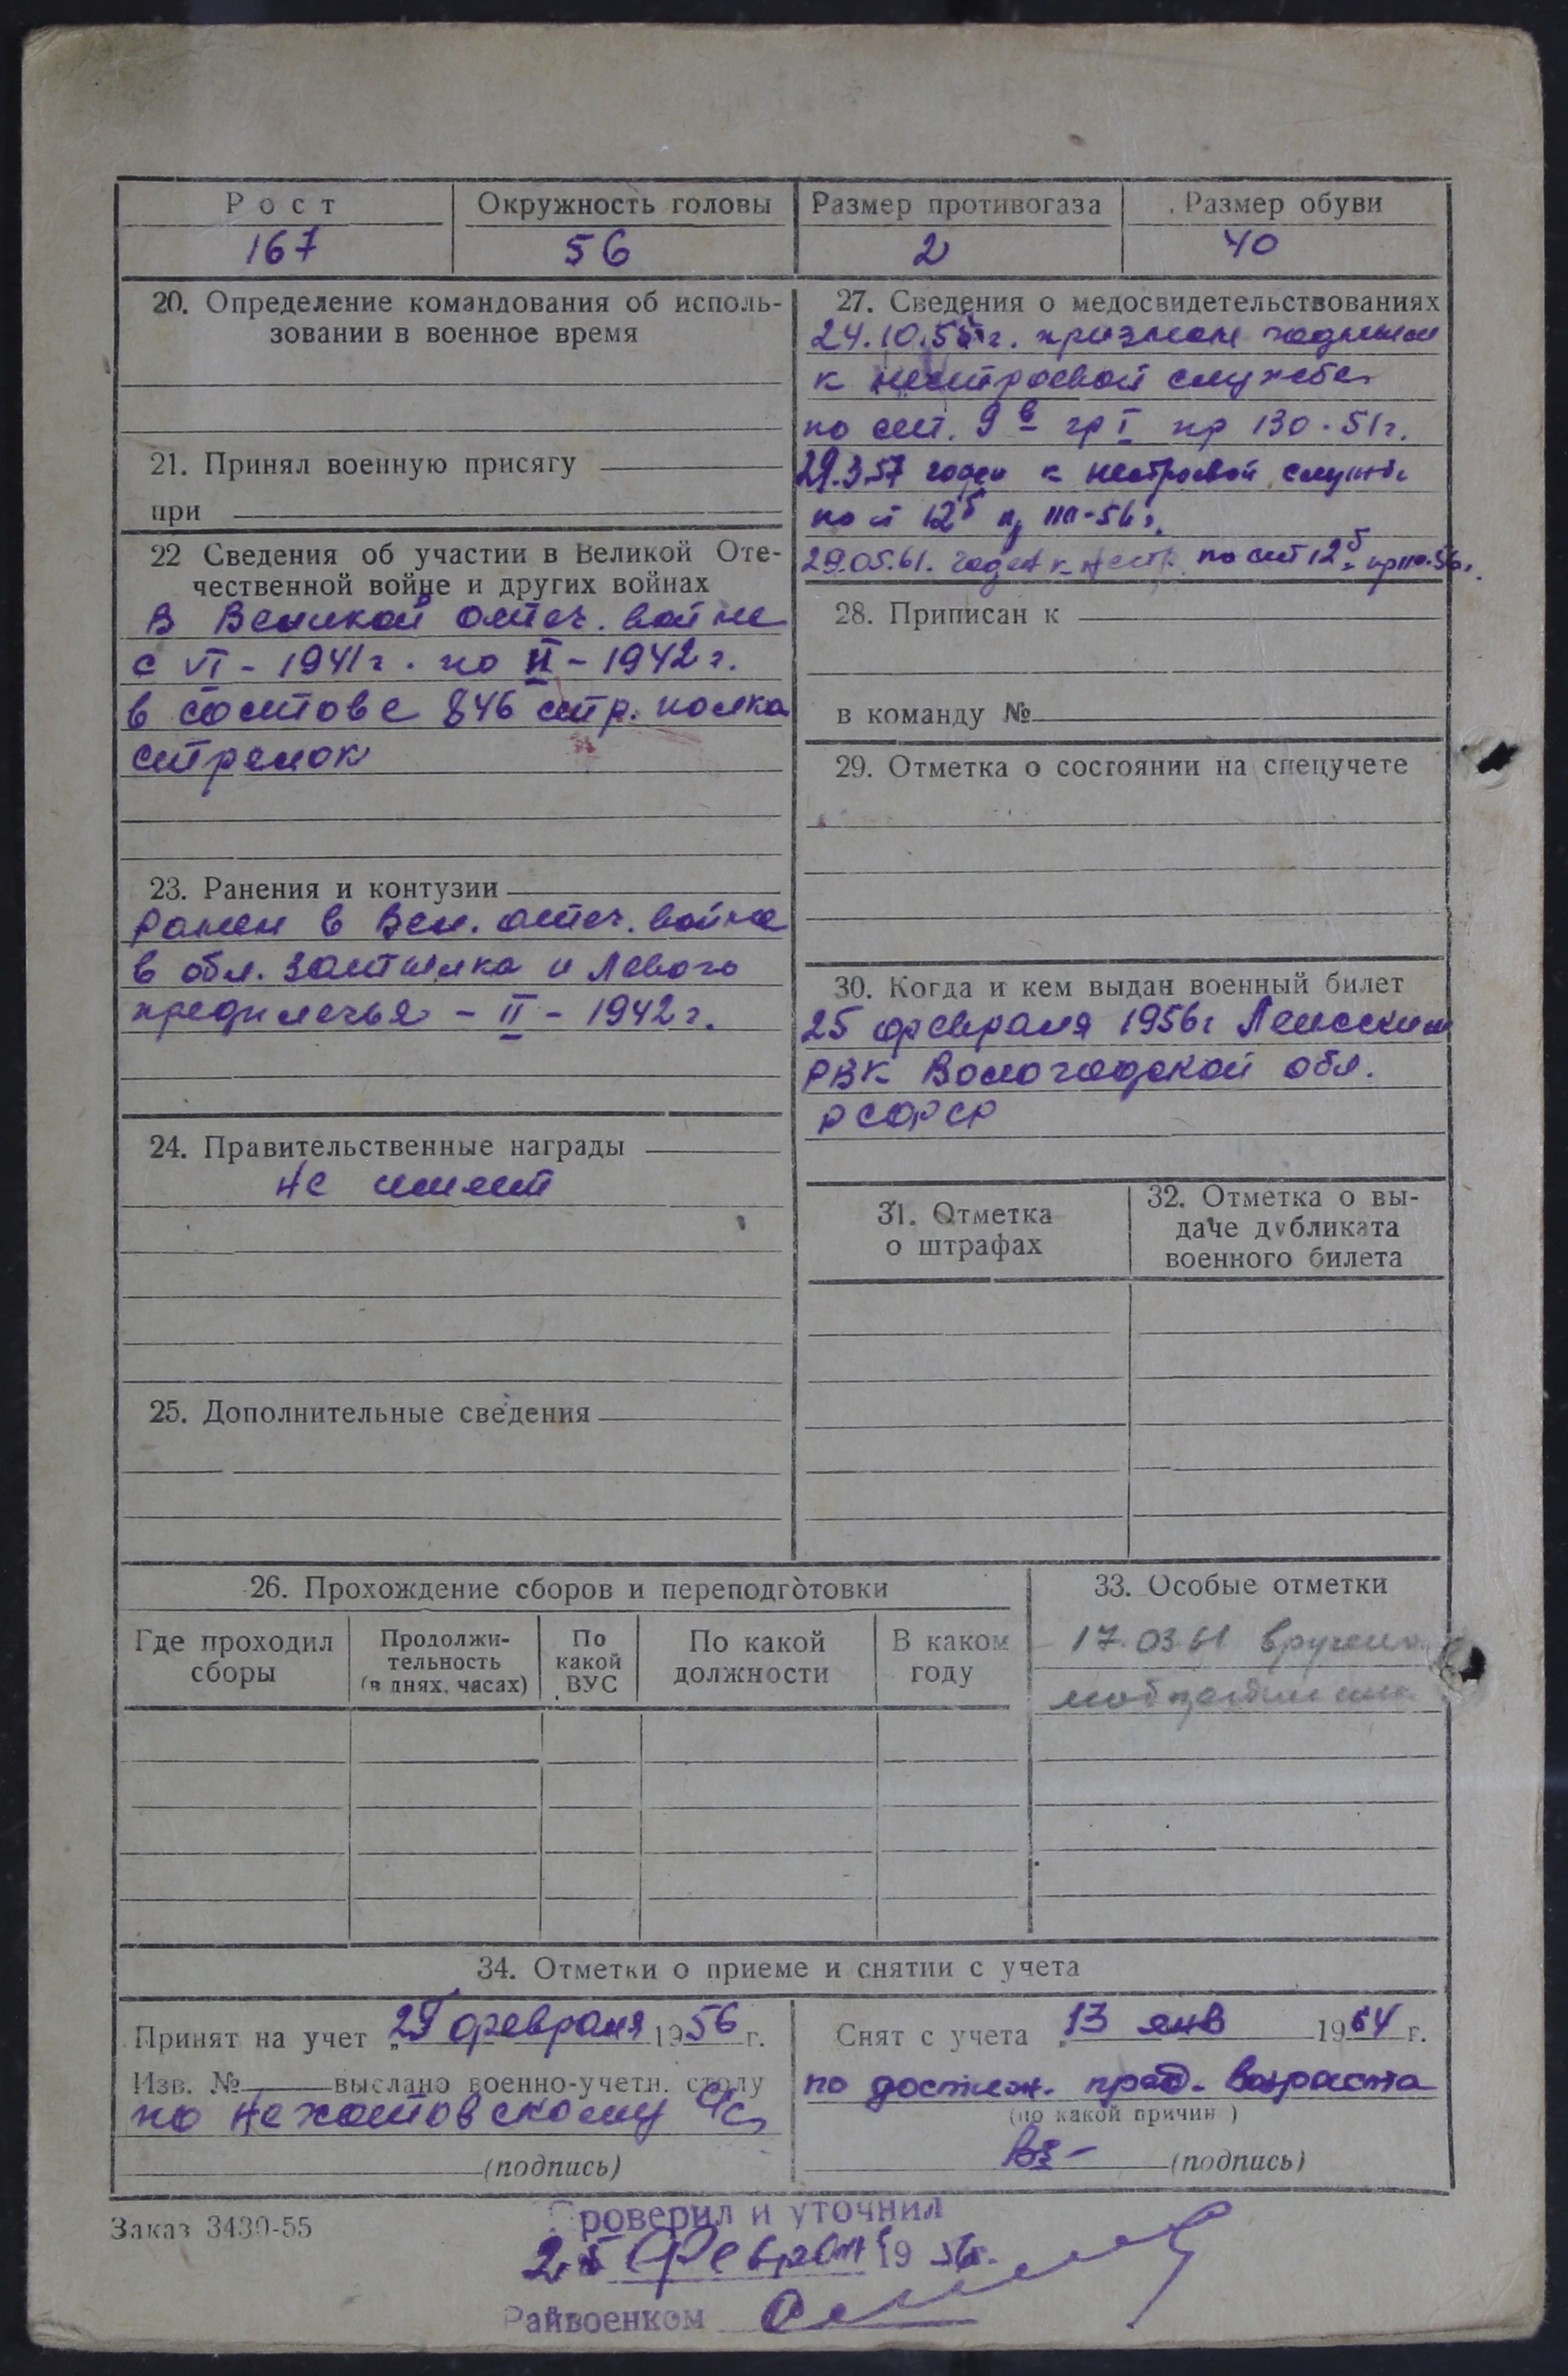 Рост
167
Окружность головы
56
Размер противогаза
2
Размер обуви
40
20. Определение командования об исполь-
зовании в военное время
21. Принял военную присягу
при
22 Сведения об участии в Великой Оте-
чественной войне и других войнах
В Великой отеч. войне
с VI - 1941 г. по II - 1942 г.
в составе 846 стр. полка
стрелок
23. Ранения и контузии
Ранен в Вел. отеч. войне
в обл. затылка и левого
предплечья - II - 1942 г.
24. Правительственные награды
не имеет
25. Дополнительные сведения
27. Сведения о медосвидетельствованиях
24.10.55 г. признан годным
к нестроевой службе
по ст. 9 в гр I пр 130-51г.
29.3.57 годен к нестроевой службе
по ст 12 б пр 110-56 г.
29.05.61. годен к нестр. по ст 12 б пр 110.56 г.
28. Приписан к
в команду №
29. Отметка о состоянии на спецучете
30. Когда и кем выдан военный билет
25 февраля 1956 г Ленским
РВК Вологодской обл.
РСФСР
31. Отметка
о штрафах
32. Отметка о вы-
даче дубликата
военного билета
26. Прохождение сборов и переподготовки
Где проходил
сборы
Продолжи-
тельность
(в днях, часах)
По
какой
ВУС
По какой
должности
В каком
году
33. Особые отметки
17.03.61 вручено
мобпредписание
34. Отметки о приеме и снятии с учета
Принят на учет „25 февраля 1956 г.
Изв. № выслано военно-учетн. столу
по
(подпись)
Снят с учета „13 янв 1964 г.
по достиж. пред. возраста
(по какой причин )
(подпись)
Заказ 3430-55
Проверил и уточнил
25 Февраля 1956 г.
Райвоенком